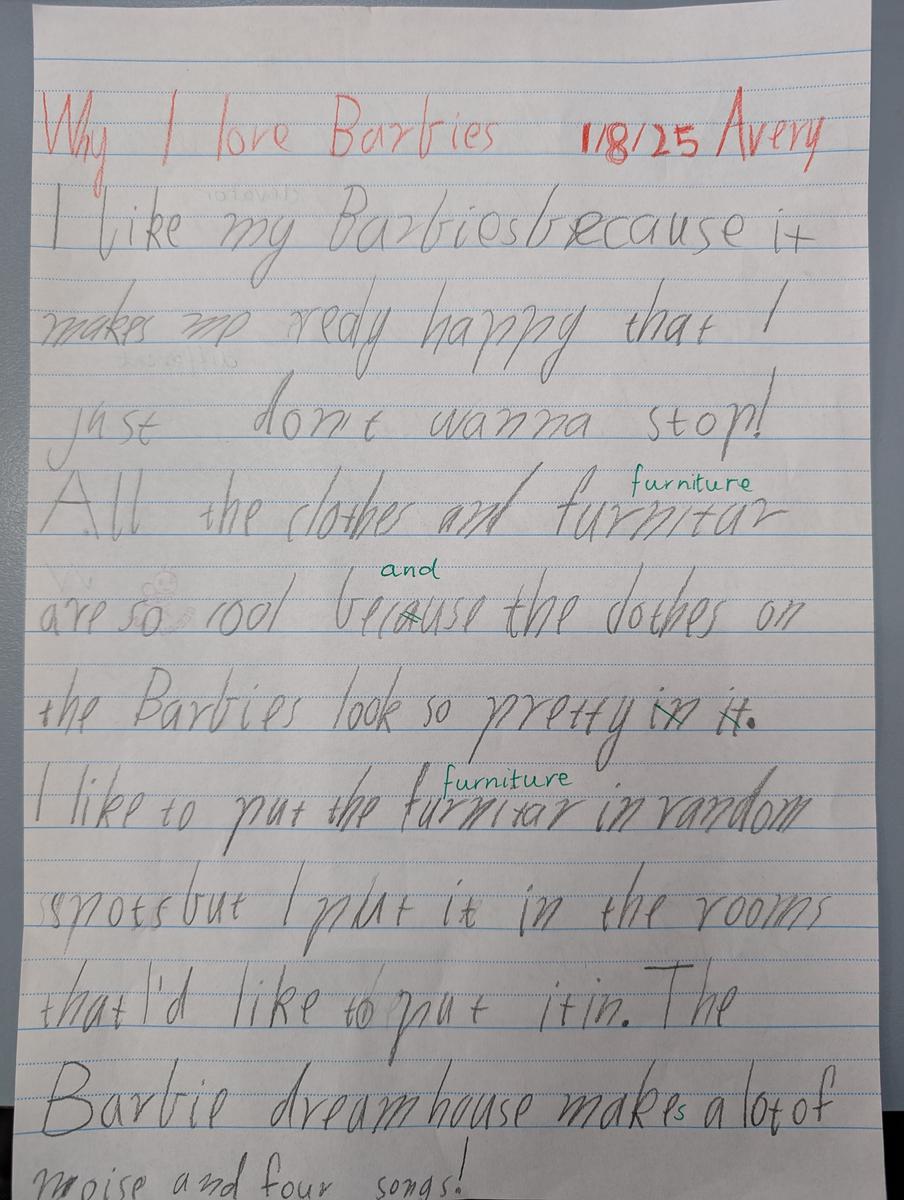 Why I love Barbies 1/8/25 Avery
I like my Barbies because it
makes me redy happy that I
just don't wanna stop!
furniture
All the clothes and furnitar
and
are so cool because the clothes on
the Barbies look so pretty in it.
furniture
I like to put the furnitar in random
spots but I put it in the rooms
that I'd like to put it in. The
Barbie dreamhouse makes a lot of
noise and four songs!